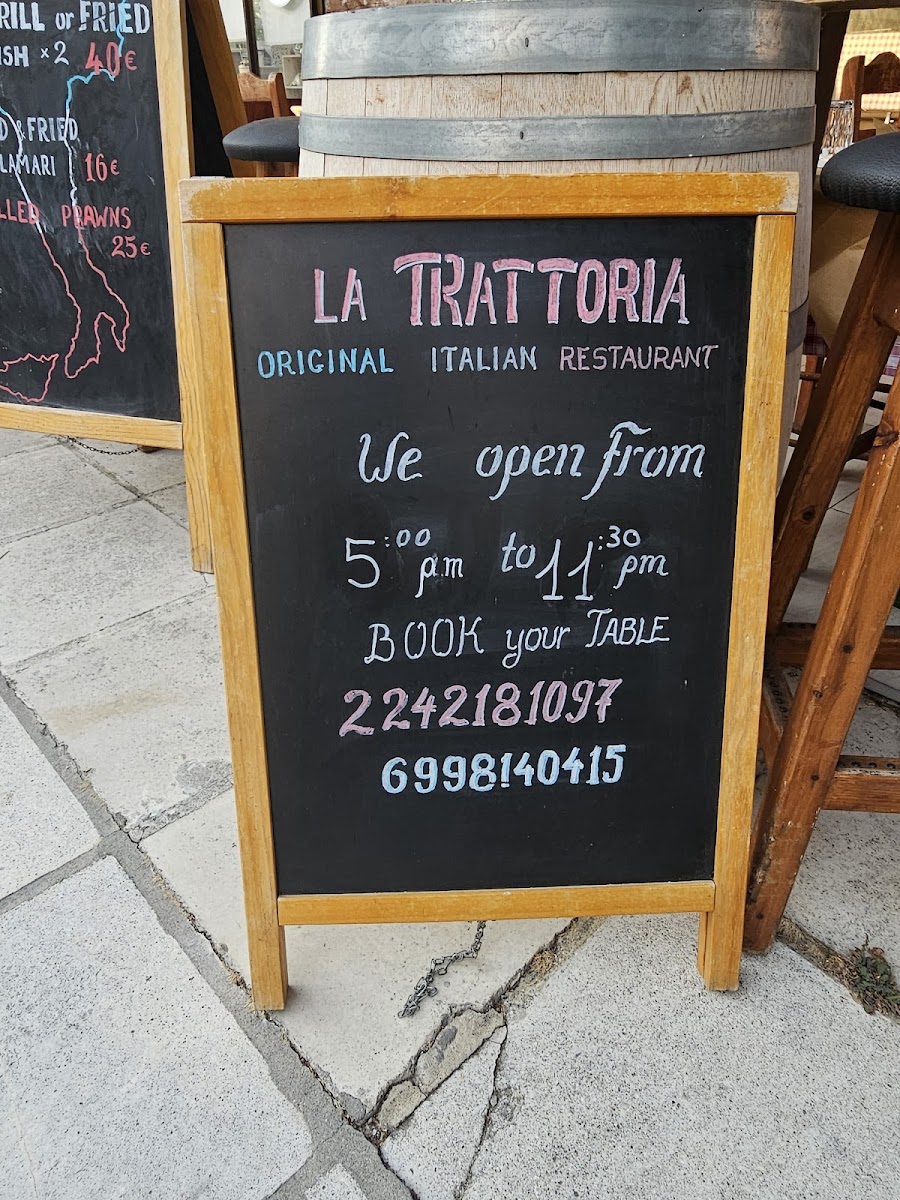 RILL or FRIED
ISH x2 40€
D & FRIED
LAMARI 16€
LLED PRAWNS
25€
LA TRATTORIA
ORIGINAL ITALIAN RESTAURANT
We open from
5:00 p.m to 11:30 pm
BOOK your TABLE
2242181097
6998140415